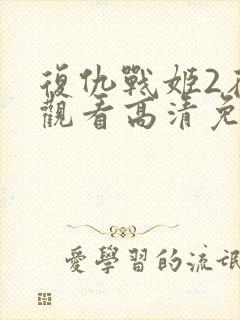 復仇戰姬2
觀看高清免
愛學習的流氓